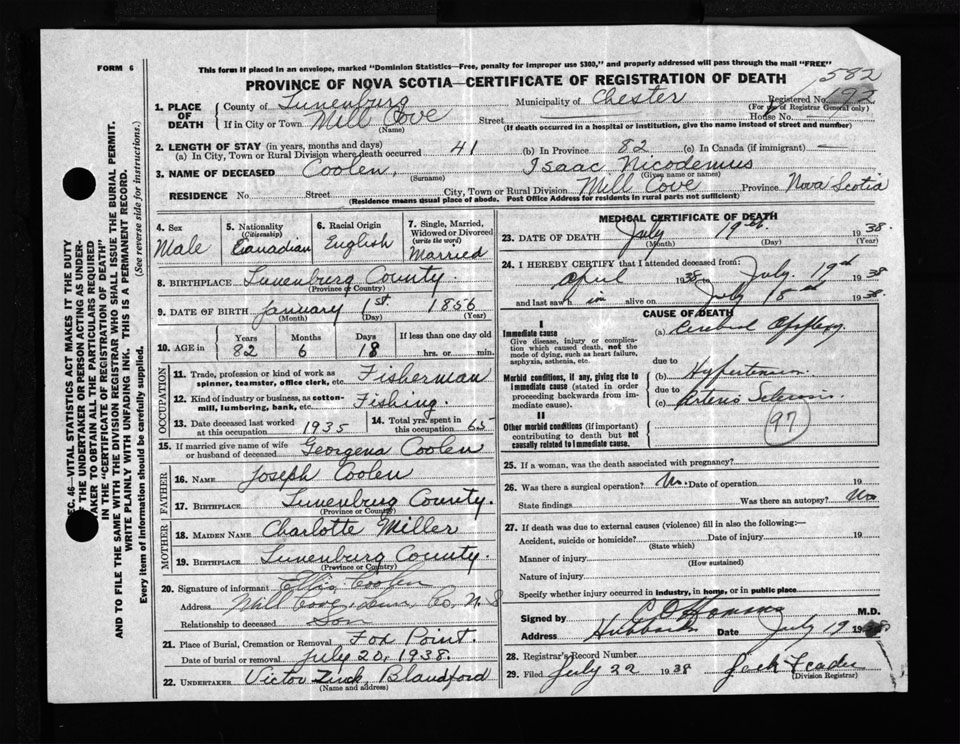 FORM 6
This form if placed in an envelope, marked "Dominion Statistics—Free, penalty for improper use $300," and properly addressed will pass through the mail "FREE"
PROVINCE OF NOVA SCOTIA—CERTIFICATE OF REGISTRATION OF DEATH
582
1. PLACE OF DEATH County of Lunenburg Municipality of Chester Registered No. 192
(For use of Registrar General only)
If in City or Town Mill Cove Street House No.
(Name) (If death occurred in a hospital or institution, give the name instead of street and number)
2. LENGTH OF STAY (in years, months and days)
(a) In City, Town or Rural Division where death occurred 41 (b) In Province 82 (c) In Canada (if immigrant) —
3. NAME OF DECEASED Coolen, Isaac Nicodemus
(Surname) (Given name or names)
RESIDENCE No. Street City, Town or Rural Division Mill Cove Province Nova Scotia
(Residence means usual place of abode. Post Office Address for residents in rural parts not sufficient)
4. Sex Male
5. Nationality (Citizenship) Canadian
6. Racial Origin English
7. Single, Married, Widowed or Divorced (write the word) Married
8. BIRTHPLACE Lunenburg County
(Province or Country)
9. DATE OF BIRTH January 1st 1856
(Month) (Day) (Year)
10. AGE in Years 82 Months 6 Days 18 If less than one day old hrs. or min.
OCCUPATION
11. Trade, profession or kind of work as spinner, teamster, office clerk, etc. Fisherman
12. Kind of industry or business, as cotton-mill, lumbering, bank, etc. Fishing.
13. Date deceased last worked at this occupation 1935
14. Total yrs. spent in this occupation 65
15. If married give name of wife or husband of deceased Georgena Coolen
FATHER
16. NAME Joseph Coolen
17. BIRTHPLACE Lunenburg County.
(Province or Country)
MOTHER
18. MAIDEN NAME Charlotte Miller
19. BIRTHPLACE Lunenburg County.
(Province or Country)
20. Signature of informant Ellis Coolen
Address Mill Cove, Lun. Co. N.S
Relationship to deceased Son
21. Place of Burial, Cremation or Removal Fox Point.
Date of burial or removal July 20, 1938.
22. UNDERTAKER Victor Blandford
(Name and address)
MEDICAL CERTIFICATE OF DEATH
23. DATE OF DEATH July 19th 1938.
(Month) (Day) (Year)
24. I HEREBY CERTIFY that I attended deceased from:
April 1938 to July 19th 1938
and last saw him alive on July 1938.
CAUSE OF DEATH
I
Immediate cause
Give disease, injury or complication which caused death, not the mode of dying, such as heart failure, asphyxia, asthenia, etc.
(a) Cerebral Apoplexy.
due to
Morbid conditions, if any, giving rise to immediate cause (stated in order proceeding backwards from immediate cause).
(b) Hypertension.
due to
(c) Arterio Sclerosis.
II
Other morbid conditions (if important) contributing to death but not causally related to immediate cause.
97
25. If a woman, was the death associated with pregnancy?
26. Was there a surgical operation? No. Date of operation 19
State findings Was there an autopsy? No
27. If death was due to external causes (violence) fill in also the following:—
Accident, suicide or homicide? Date of injury 19
(State which)
Manner of injury
(How sustained)
Nature of injury
Specify whether injury occurred in industry, in home, or in public place
Signed by M.D.
Address Hubbards Date July 19 1938
28. Registrar's Record Number
29. Filed July 22 1938
(Division Registrar)
SEC. 46—VITAL STATISTICS ACT MAKES IT THE DUTY
OF THE UNDERTAKER OR PERSON ACTING AS UNDERTAKER TO OBTAIN ALL THE PARTICULARS REQUIRED
IN THE "CERTIFICATE OF REGISTRATION OF DEATH"
AND TO FILE THE SAME WITH THE DIVISION REGISTRAR WHO SHALL ISSUE THE BURIAL PERMIT.
WRITE PLAINLY WITH UNFADING INK. THIS IS A PERMANENT RECORD.
Every item of information should be carefully supplied. (See reverse side for instructions).